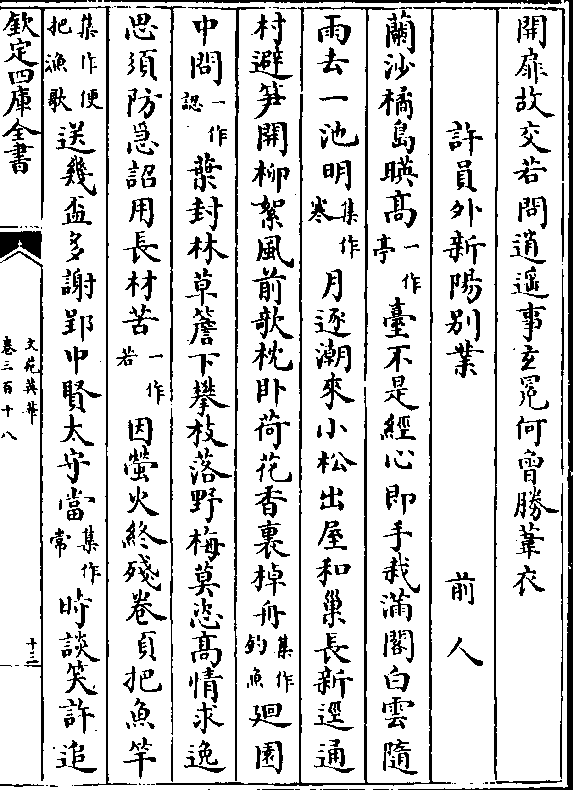 開扉故交若問逍遥事玄冕何曾勝葦衣
許員外新陽别業　前人
蘭沙橘島暎髙一作亭臺不是經心即手栽滿閣白雲隨
雨去一池明集作寒月逐潮來小松出屋和巢長新逕通
村避笋開柳絮風前欹枕卧荷花香裏棹舟集作釣魚廻園
中問一作認葉封林草簷下攀枝落野梅莫恣髙情求逸
思須防急詔用長材苦一作若因螢火終殘卷頁把魚竿
集作便把漁歌送幾盃多謝郢中賢太守當集作常時談笑許追
欽定四庫全書
文苑英華
卷三百十八
十三